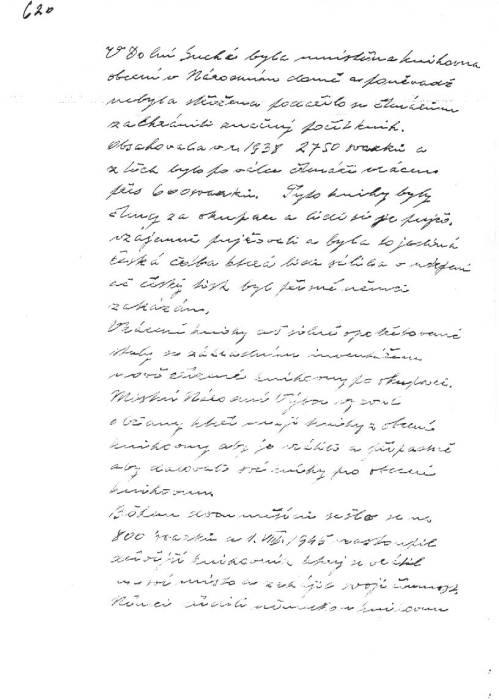 620
V Dolní Suché byla umístěna knihovna
obecní v Národním domě a poněvadž
nebyla střežena podařilo se čtenářům
zachrániti značný počet knih.
Obsahovala v r. 1938 2750 svazků a
z těch bylo po válce čtenáři vráceno
přes 600 svazků. Tyto knihy byly
čteny za okupace a lidé si je
vzájemně půjčovali a byla to jediná
česká četba která lidi sílila v utrpení
ač český tisk byl přísně němci
zakázán.
Vrácené knihy ač silně opotřebované
staly se základním inventářem
nově zřízené knihovny po okupaci.
Místní Národní Výbor vyzval
občany kteří mají knihy z obecní
knihovny aby je vrátili a případně
aby darovali své knihy pro obecní
knihovnu.
Během dvou měsíců sešlo se na
800 svazků a 1. VIII. 1945 nastoupil
dřívější knihovník který se vrátil
na své místo a zahájil svoji činnost.
Němci zřídili německou knihovnu